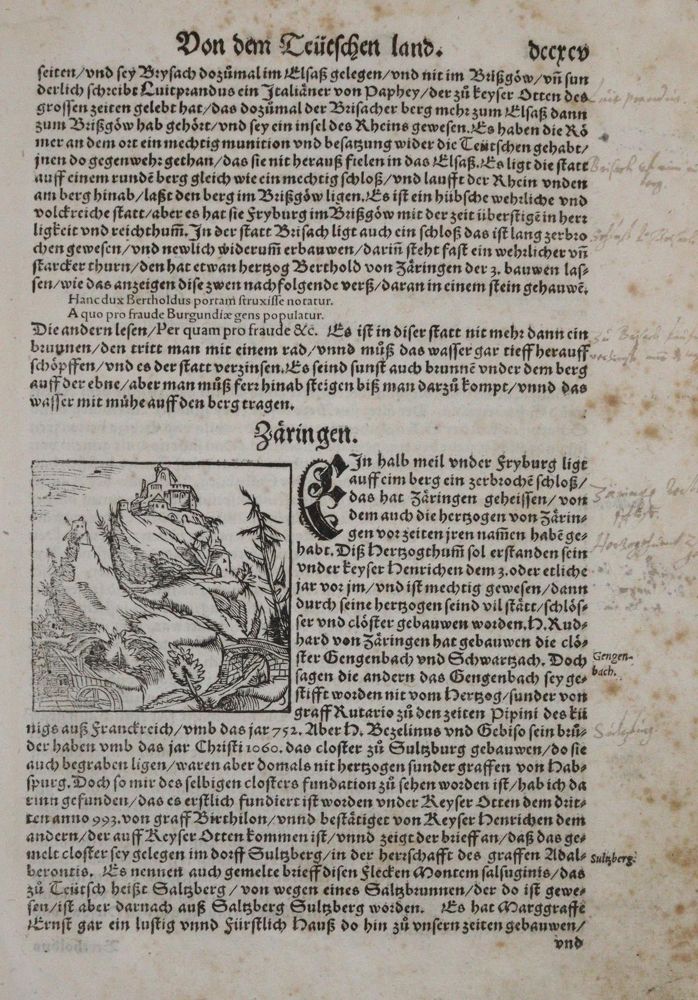 Von dem Teütschen land. dccxcv
seiten/vnd sey Brysach dozůmal im Elsaß gelegen/vnd nit im Brißgöw/vñ sun
derlich schreibt Luitprandus ein Italiäner von Paphey/der zů keyser Otten des
grossen zeiten gelebt hat/das dozůmal der Brisacher berg mehr zum Elsaß dann
zum Brißgöw hab gehört/vnd sey ein insel des Rheins gewesen. Es haben die Rö
mer an dem ort ein mechtig munition vnd besatzung wider die Teütschen gehabt/
jnen do gegenwehr gethan/das sie nit herauß fielen in das Elsaß. Es ligt die statt
auff einem rundē berg gleich wie ein mechtig schloß/vnd laufft der Rhein vnden
am berg hinab/laßt den berg im Brißgöw ligen. Es ist ein hübsche wehrliche vnd
volckreiche statt/aber es hat sie Fryburg im Brißgöw mit der zeit überstigē in herr
ligkeit vnd reichthum̃. In der statt Brisach ligt auch ein schloß das ist lang zerbro
chen gewesen/vnd newlich widerum̃ erbauwen/dariñ steht fast ein wehrlicher vñ
starcker thurn/den hat etwan hertzog Berthold von Zäringen der 3. bauwen las-
sen/wie das anzeigen dise zwen nachfolgende verß/daran in einem stein gehauwē.
Hanc dux Bertholdus portam struxisse notatur.
A quo pro fraude Burgundiæ gens populatur.
Die andern lesen/Per quam pro fraude &c. Es ist in diser statt nit mehr dann ein
brunnen/den tritt man mit einem rad/vnnd můß das wasser gar tieff herauff
schöpffen/vnd es der statt verzinsen. Es seind sunst auch brunnē vnder dem berg
auff der ebne/aber man můß ferz hinab steigen biß man darzů kompt/vnnd das
wasser mit mühe auff den berg tragen.
Zäringen.
EIn halb meil vnder Fryburg ligt
auff eim berg ein zerbrochē schloß/
das hat Zäringen geheissen/von
dem auch die hertzogen von Zärin-
gen vor zeiten jren nam̃en habē ge-
habt. Diß Hertzogthum̃ sol erstanden sein
vnder keyser Henrichen dem 3. oder etliche
jar vor jm/vnd ist mechtig gewesen/dann
durch seine hertzogen seind vil stätt/schlös-
ser vnd clöster gebauwen worden. H. Rud-
hard von Zäringen hat gebauwen die clö-
ster Gengenbach vnd Schwartzach. Doch
sagen die andern das Gengenbach sey ge-
stifft worden nit vom Hertzog/sunder von
graff Rutario zů den zeiten Pipini des kü
nigs auß Franckreich/vmb das jar 752. Aber H. Bezelinus vnd Gebiso sein brů-
der haben vmb das jar Christi 1060. das closter zů Sultzburg gebauwen/do sie
auch begraben ligen/waren aber domals nit hertzogen sunder graffen von Hab-
spurg. Doch so mir des selbigen closters fundation zů sehen worden ist/hab ich da
rinn gefunden/das es erstlich fundiert ist worden vnder Keyser Otten dem drit-
ten anno 993. von graff Birthilon/vnnd bestätiget von Keyser Henrichen dem
andern/der auff Keyser Otten kommen ist/vnnd zeigt der brieff an/daß das ge-
melt closter sey gelegen im dorff Sultzberg/in der herrschafft des graffen Adal-
berontis. Es nennen auch gemelte brieff disen Flecken Montem salsuginis/das
zů Teütsch heißt Saltzberg/von wegen eines Saltzbrunnen/der do ist gewe-
sen/ist aber darnach auß Saltzberg Sultzberg worden. Es hat Marggraffe
Ernst gar ein lustig vnnd Fürstlich Hauß do hin zů vnsern zeiten gebauwen/
vnd
Gengen-
bach.
Sultzberg.